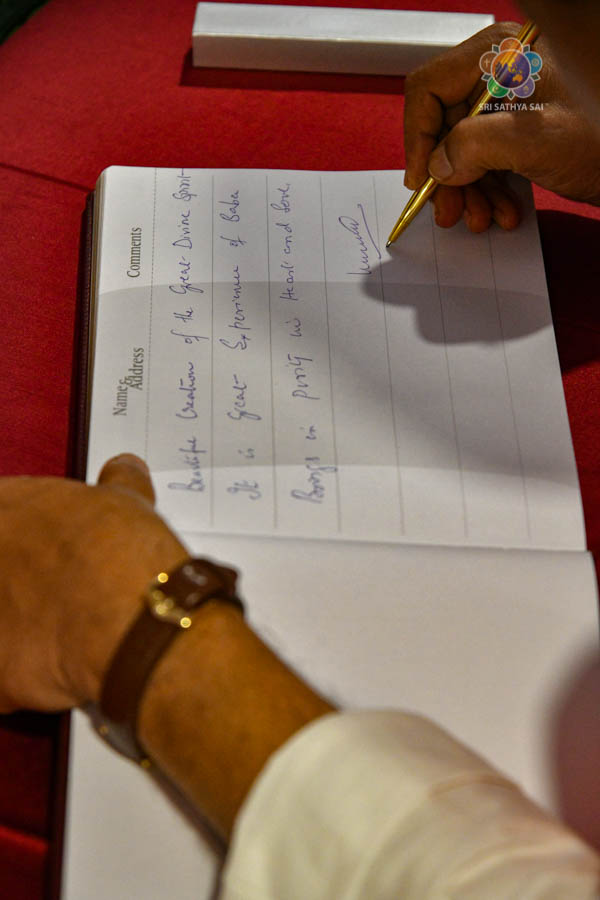 SRI SATHYA SAI
Name & Address
Comments
Beautiful Creation of the Great Divine Spirit
It is great Experience of Baba
Brings in purity in Heart and Love.